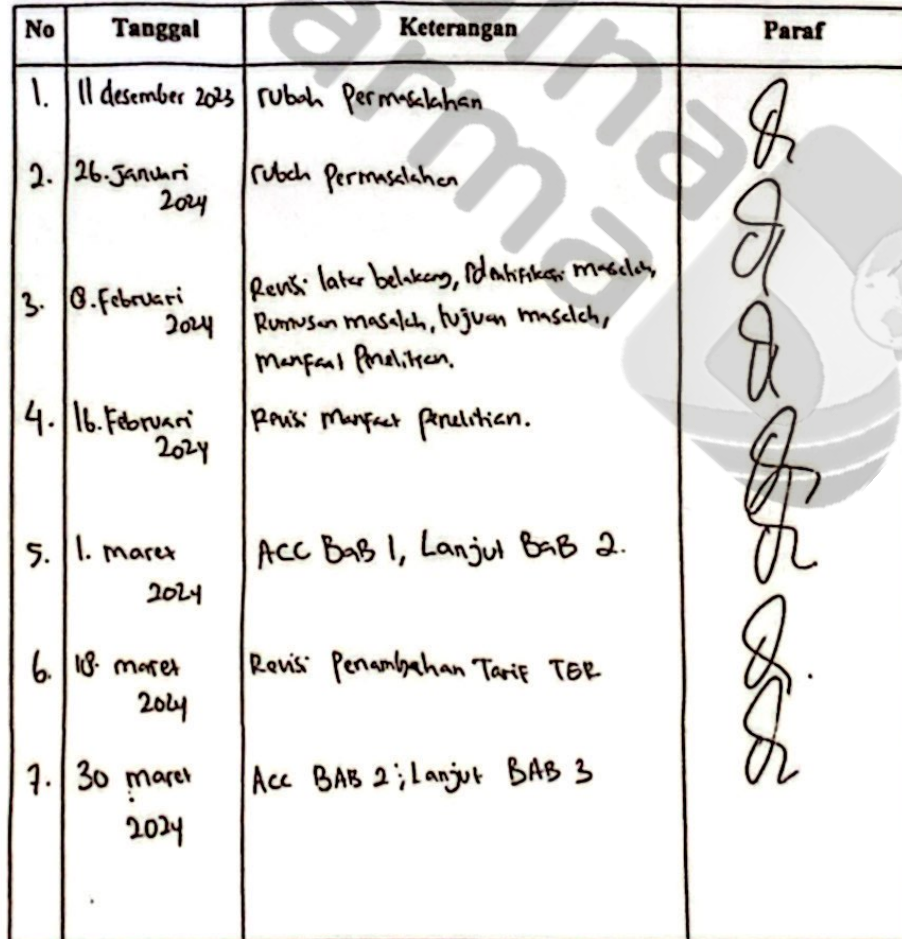 No Tanggal Keterangan Paraf
1. 11 desember 2023 rubah Permasalahan
2. 26. Januari rubah Permasalahan
2024
Revisi latar belakang, Identifikasi masalah,
3. 8. Februari
2024
Rumusan masalah, tujuan masalah,
manfaat Penelitian.
4. 16. Februari Revisi Manfaat Penelitian.
2024
5. 1. maret ACC BAB 1, Lanjut BAB 2.
2024
6. 18. maret Revisi Penambahan Tarif TER
2024
7. 30 maret Acc BAB 2; Lanjut BAB 3
2024